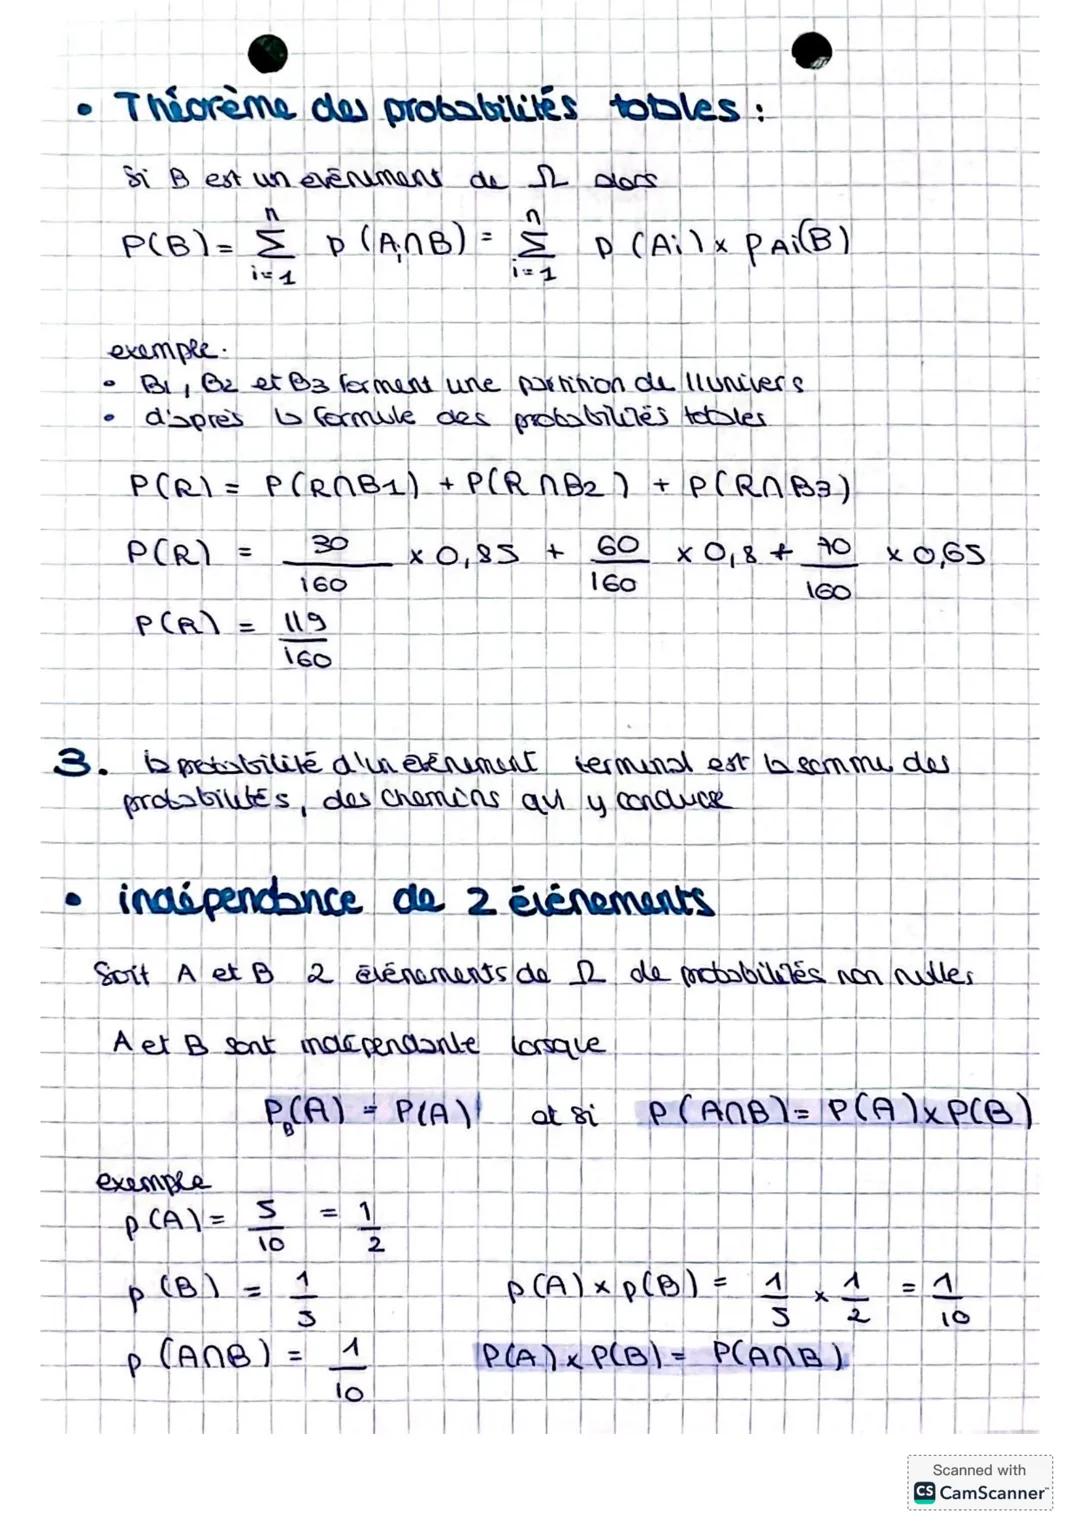 • Théorème des probabilités totales :
Si B est un evènement de Ω alors
P(B) = n∑i=1 p(Ai∩B) = n∑i=1 p(Ai) × pAi(B)
exemple.
• B1, B2 et B3 forment une partition de l'univers
• d'après la formule des probabilités totales
P(R) = P(R∩B1) + P(R∩B2) + P(R∩B3)
P(R) = 30/160 × 0,85 + 60/160 × 0,8 + 70/160 × 0,65
P(R) = 119/160
3. la probabilité d'un evènement terminal est la somme des
probabilités, des chemins qui y conduce
• indépendance de 2 événements
Soit A et B 2 événements de Ω de probabilités non nulles
A et B sont indépendante lorsque
PB(A) = P(A) et si P(A∩B) = P(A)×P(B)
exemple
p(A) = 5/10 = 1/2
p(B) = 1/5 p(A) × p(B) = 1/5 × 1/2 = 1/10
p(A∩B) = 1/10 P(A) × P(B) = P(A∩B)
Scanned with
CS CamScanner